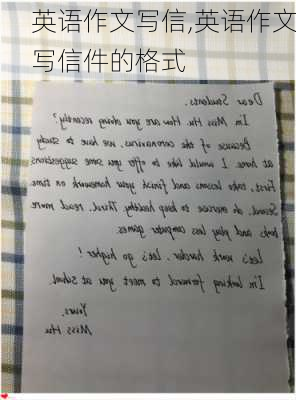 英语作文写信,英语作文
写信件的格式
Dear Students.
I'm Miss Hu. How are you doing recently?
Because of the coronavirus, we have to study
at home. I would like to offer you some suggestions
First, take lessons and finish your homework on time
Second, do exercise to keep healthy. Third, read more
books and play less computer games.
Let's work harder. let's go higher!
I'm looking forward to meet you at school.
Yours,
Miss Hu